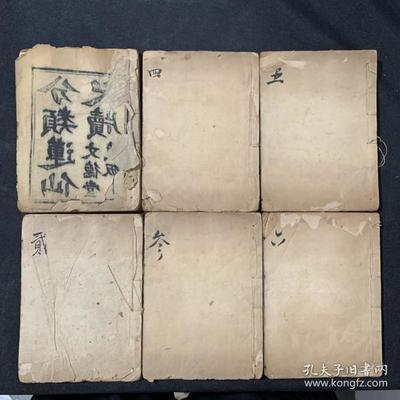 分類蓮仙
尺牘
文德堂
板
四
五
貳
参
六
孔夫子旧书网
www.kongfz.com